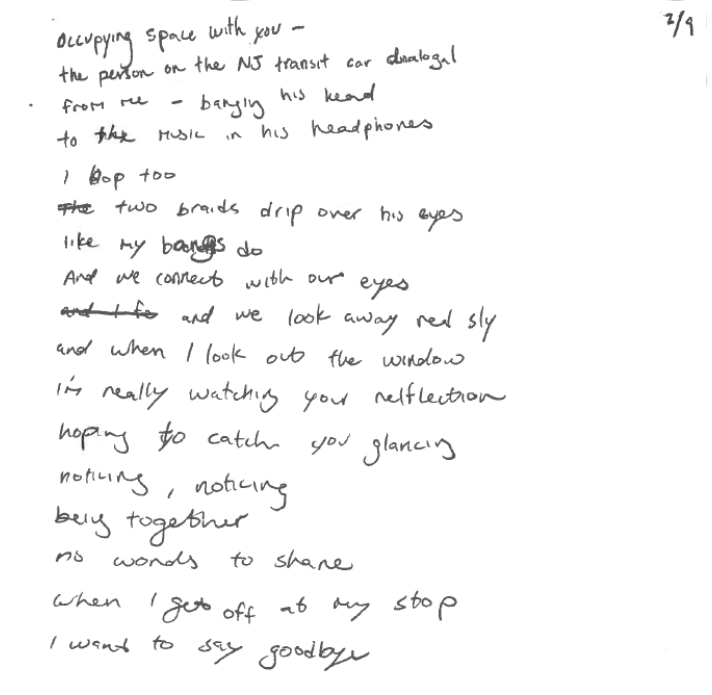 2/9
occupying space with you –
the person on the NJ transit car dnalogal
from me – banging his head
to the music in his headphones
I bop too
The two braids drip over his eyes
like my bangs do
And we connect with our eyes
and I fe and we look away real sly
and when I look out the window
I'm really watching your relflection
hoping to catch you glancing
noticing, noticing
being together
no words to share
when I get off at my stop
I want to say goodbye